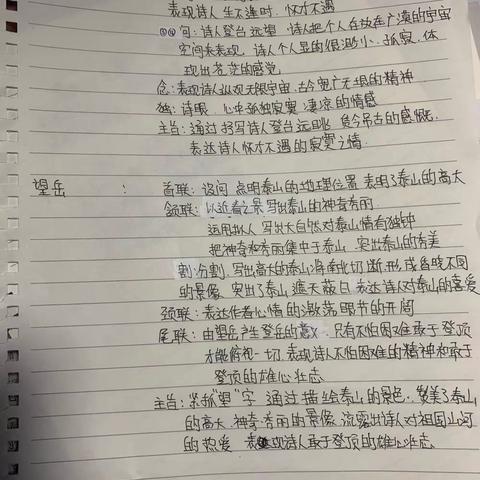 表现诗人生不逢时,怀才不遇
③④句:诗人登台远望,诗人把个人存放在广漠的宇宙
空间来表现,诗人个人显的很渺小、孤寂,体
现出苍茫的感觉
念:表现诗人纵观无限宇宙,古今宽广无垠的精神
独:诗眼,心中孤独寂寞凄凉的情感
主旨:通过抒写诗人登台远眺,负今吊古的感慨,
表达诗人怀才不遇的寂寞之情.
望岳 : 首联:设问 点明泰山的地理位置 表明3泰山的高大
颔联:以近看之景写出泰山的神奇秀丽.
运用拟人 写出大自然对泰山情有独钟
把神奇和秀丽集中于泰山,突出泰山的秀美
割:分割,写出高大的泰山将南北切断,形成昏晓不同
的景像,突出了泰山遮天蔽日,表达诗人对泰山的喜爱
颈联:表达作者心情的激荡 眼节的开阔
尾联:由望岳产生登岳的意义,只有不怕困难敢于登顶
才能俯视一切,表现诗人不怕困难的精神和敢于
登顶的雄心壮志
主旨:紧抓"望"字 通过描绘泰山的景色,赞美了泰山
的高大、神奇秀丽的景像,流露出诗人对祖国山河
的热爱 表现诗人敢于登顶的雄心壮志